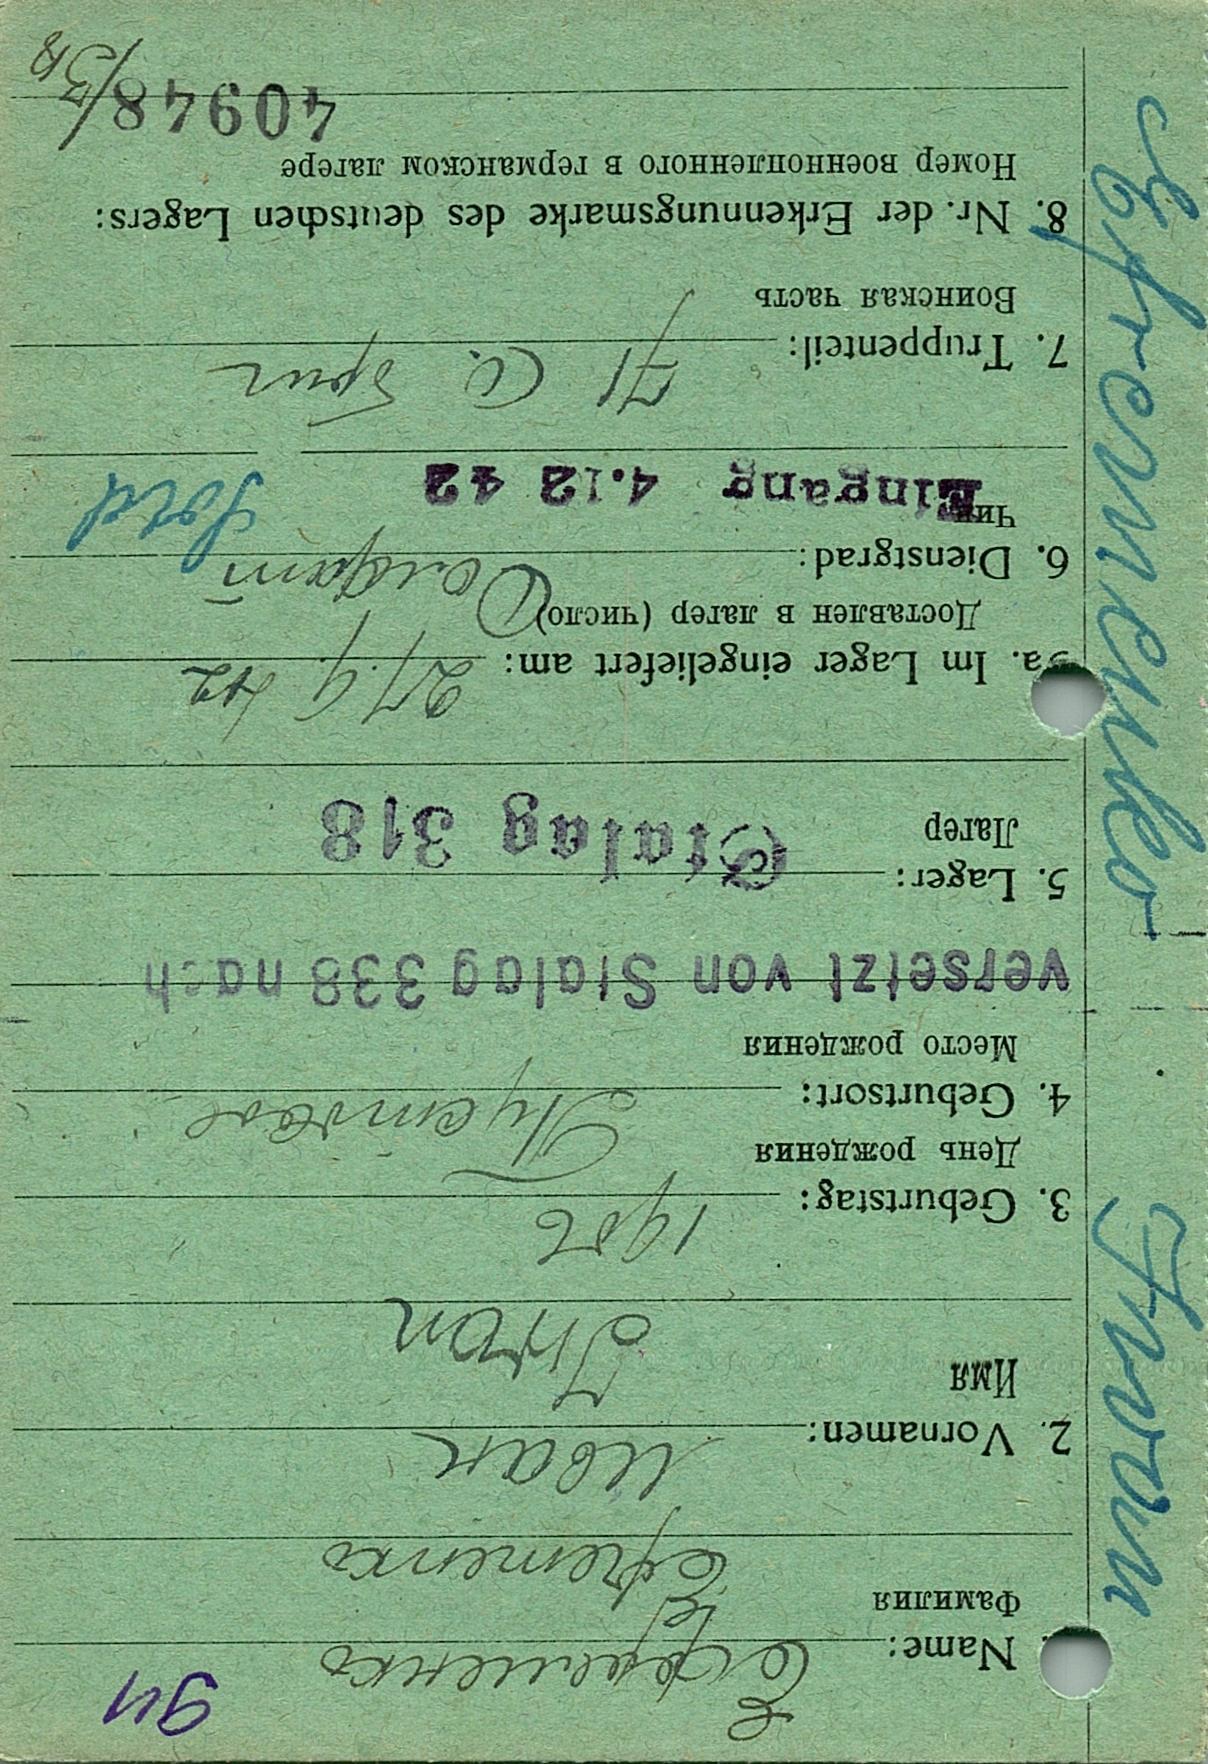 Efremenko Iwan
9И
1. Name: Ефременко
Фамилия
Efremenko
2. Vornamen: Иван
Имя
Iwan
3. Geburtstag: 1906
День рождения
4. Geburtsort:
Место рождения
versetzt von Stalag 338 nach
5. Lager: Stalag 318
Лагер
5a. Im Lager eingeliefert am: 27.9.42
Доставлен в лагер (число)
6. Dienstgrad: Солдат Sold
Чин
Eingang 4.12 42
7. Truppenteil:
Воинская часть
8. Nr. der Erkennungsmarke des deutschen Lagers:
Номер военнопленного в германском лагере
40948/318